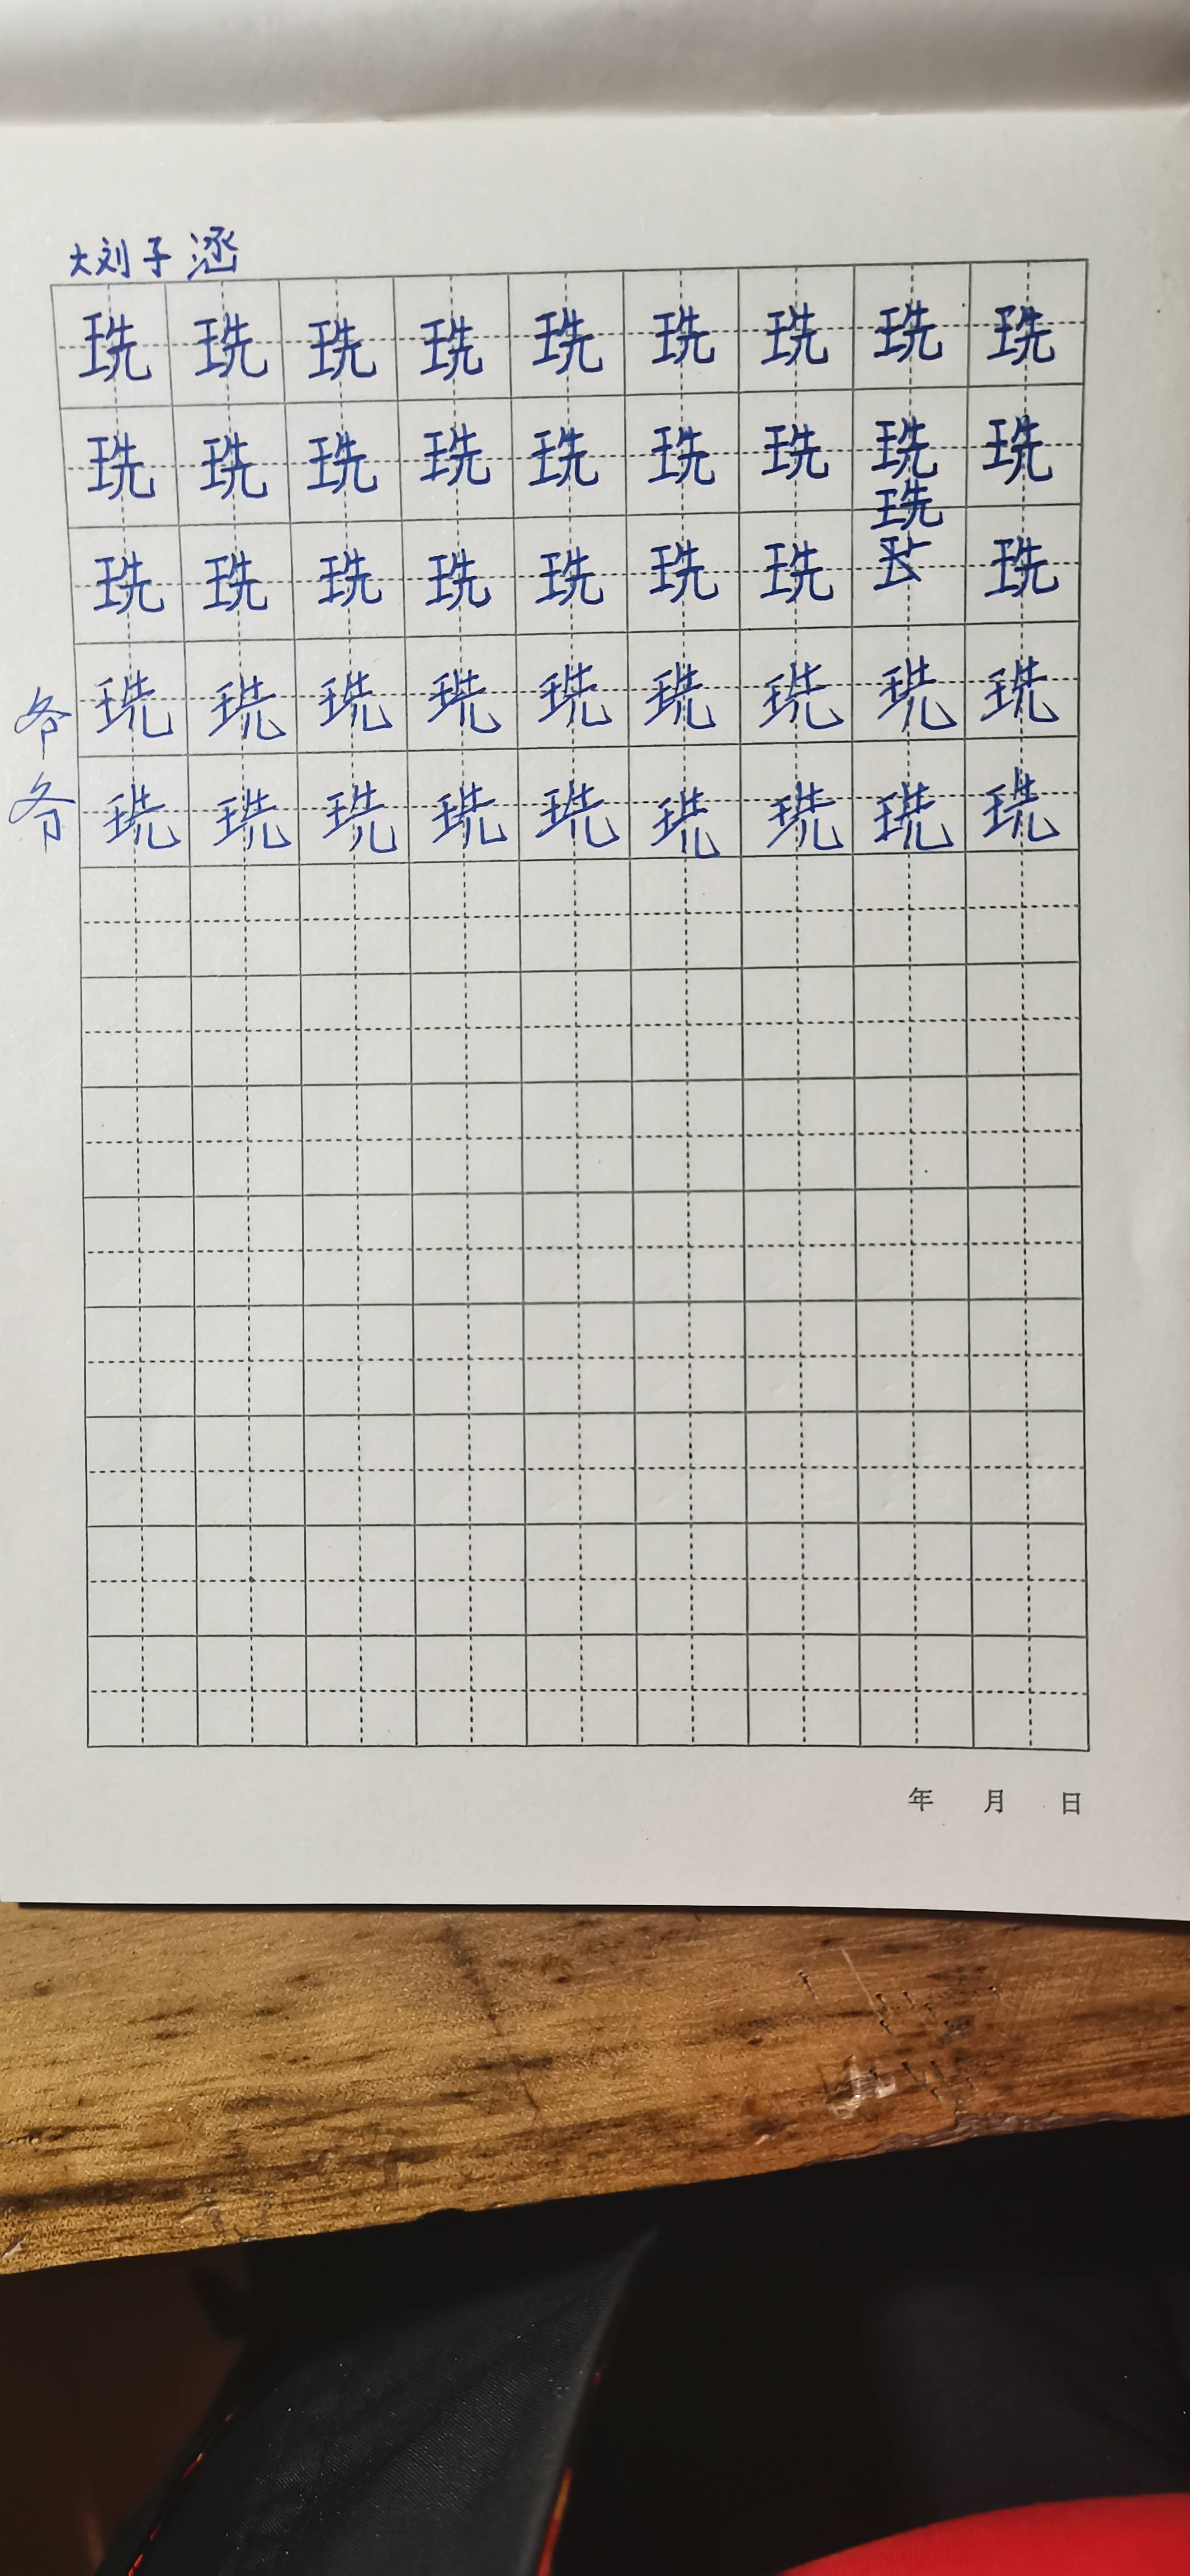 大刘子涵
珗珗珗珗珗珗珗珗珗
珗珗珗珗珗珗珗珗珗
珗
珗珗珗珗珗珗珗珗
爷珗珗珗珗珗珗珗珗珗
爷珗珗珗珗珗珗珗珗珗
年 月 日